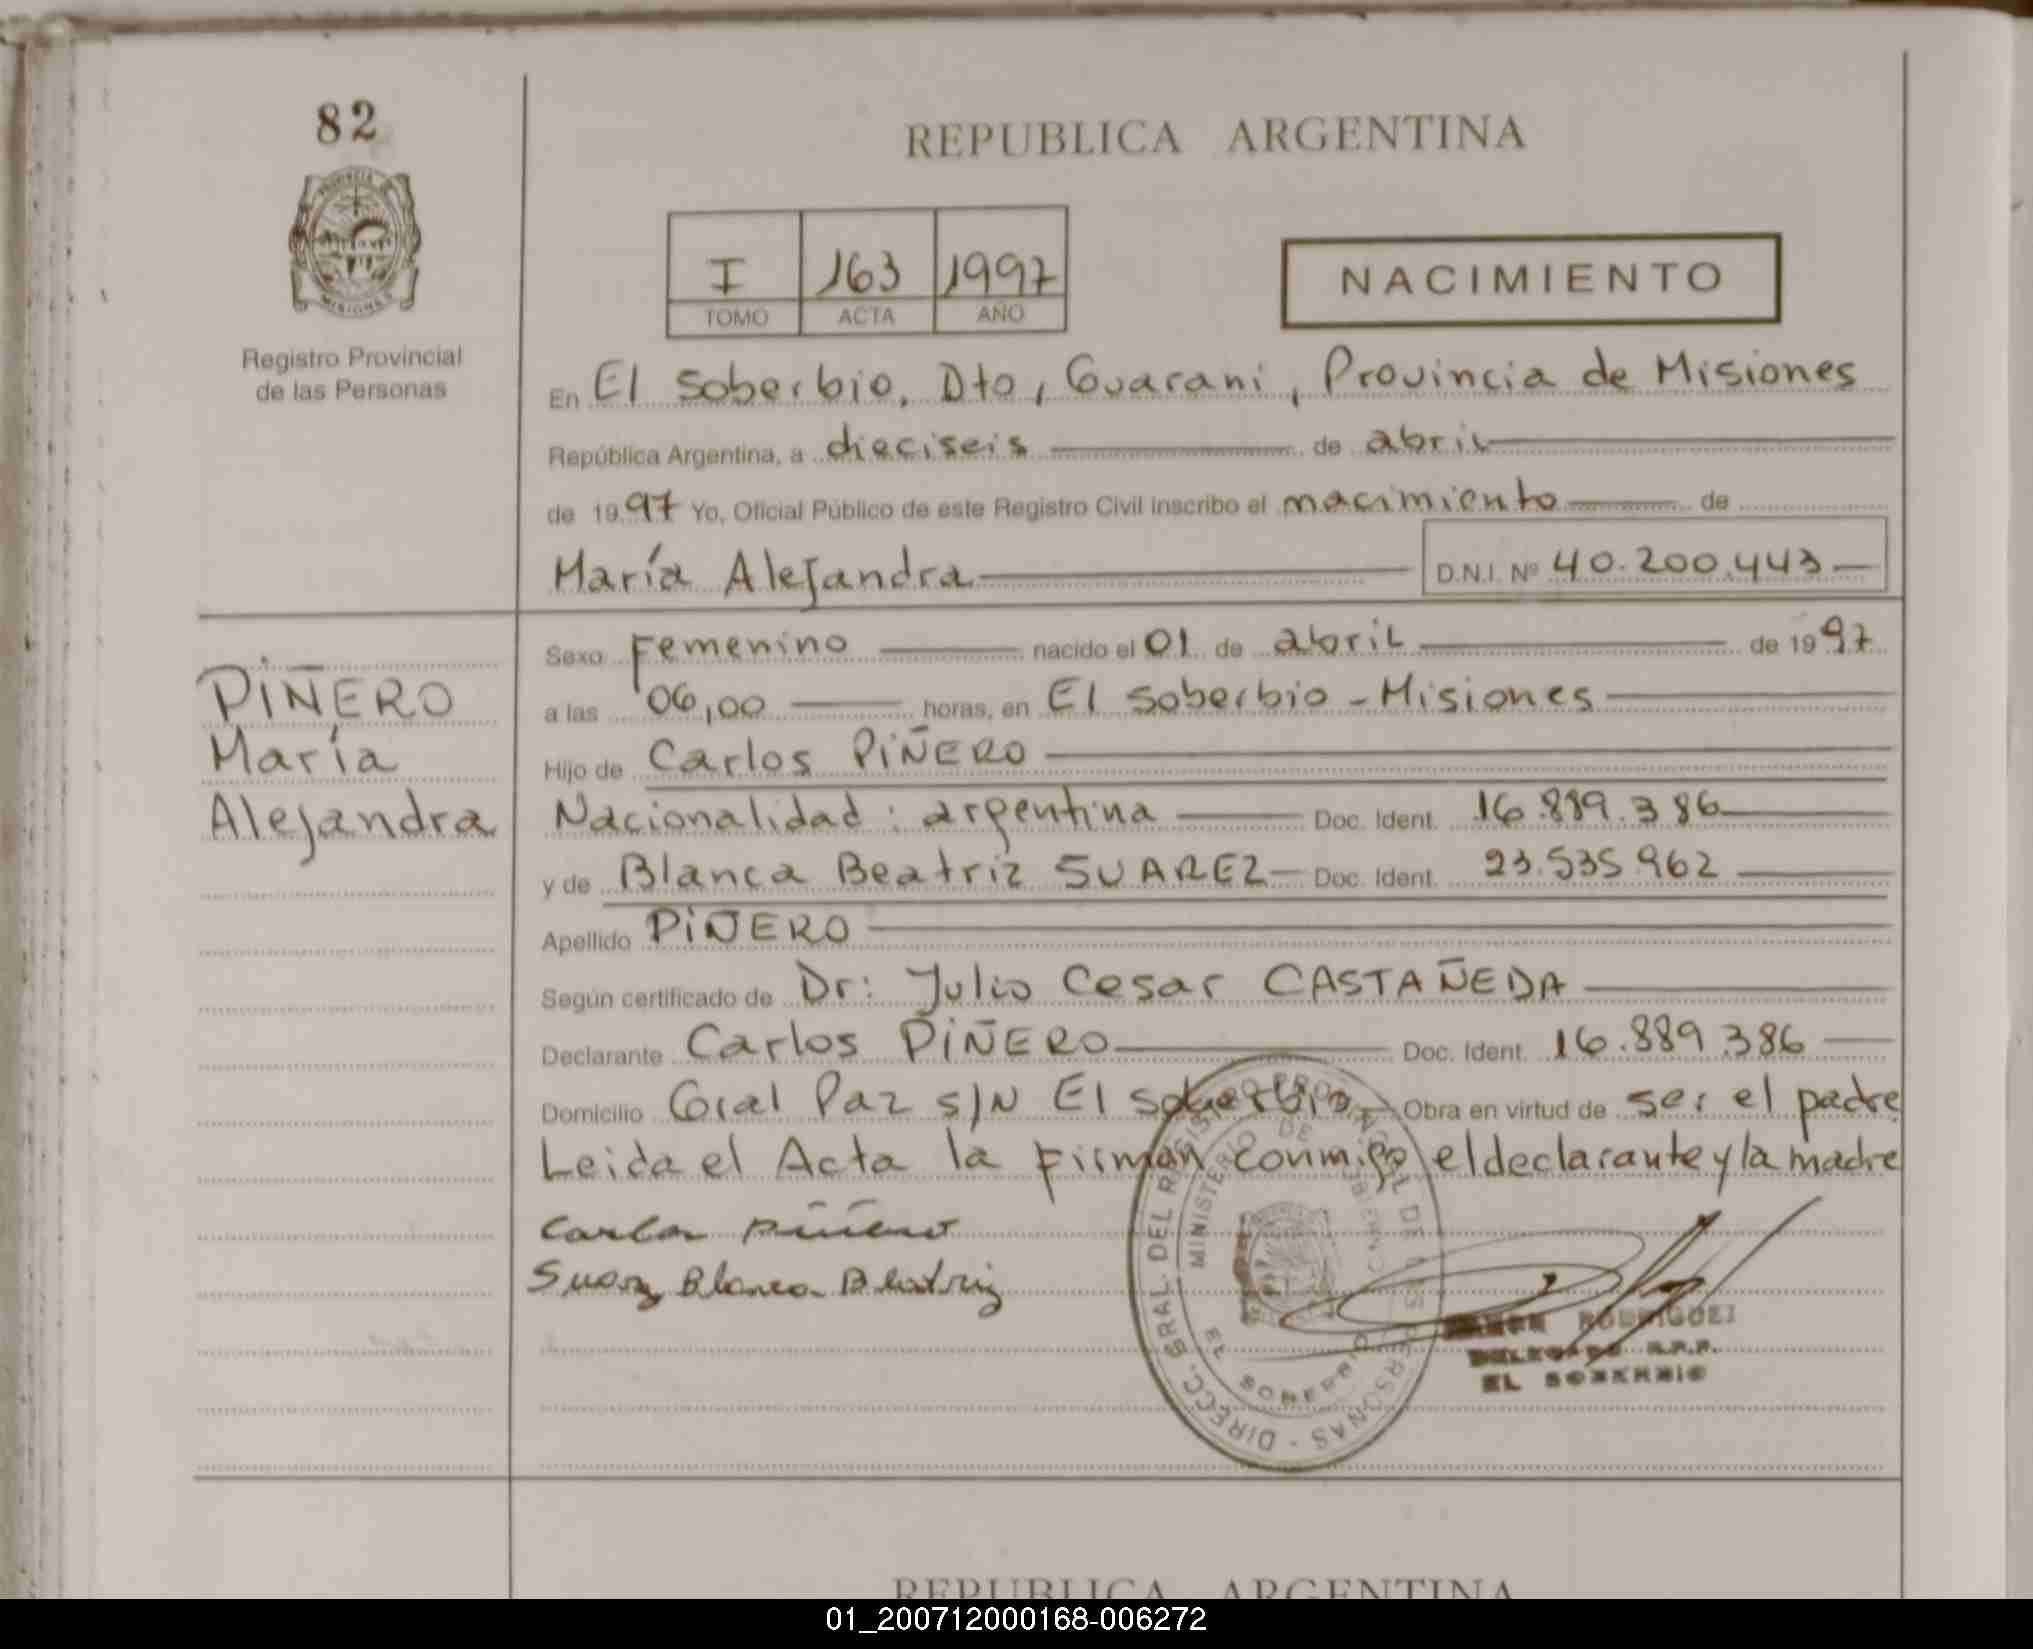 82
REPUBLICA ARGENTINA
PROVINCIA DE
MISIONES
Registro Provincial
de las Personas
I 163 1997
TOMO ACTA AÑO
NACIMIENTO
En El Soberbio, Dto, Guarani, Provincia de Misiones
República Argentina, a dieciseis de abril
de 1997 Yo, Oficial Público de este Registro Civil inscribo el nacimiento de
María Alejandra D.N.I. Nº 40.200.443
PIÑERO
María
Alejandra
Sexo Femenino nacido el 01 de abril de 1997
a las 06,00 horas, en El Soberbio - Misiones
Hijo de Carlos PIÑERO
Nacionalidad: argentina Doc. Ident. 16.889.386
y de Blanca Beatriz SUAREZ Doc. Ident. 23.535.962
Apellido PIÑERO
Según certificado de Dr: Julio Cesar CASTAÑEDA
Declarante Carlos PIÑERO Doc. Ident. 16.889.386
Domicilio Gral Paz S/N El Soberbio Obra en virtud de ser el padre
Leida el Acta la firman conmigo el declarante y la madre
Carlos Piñero
Suarez Blanca Beatriz
DIRECC. GRAL. DEL REGISTRO PROVINCIAL DE LAS PERSONAS
MINISTERIO DE GOBIERNO
EL SOBERBIO
RAMON RODRIGUEZ
DELEGADO R.P.P.
EL SOBERBIO
REPUBLICA ARGENTINA
01_200712000168-006272